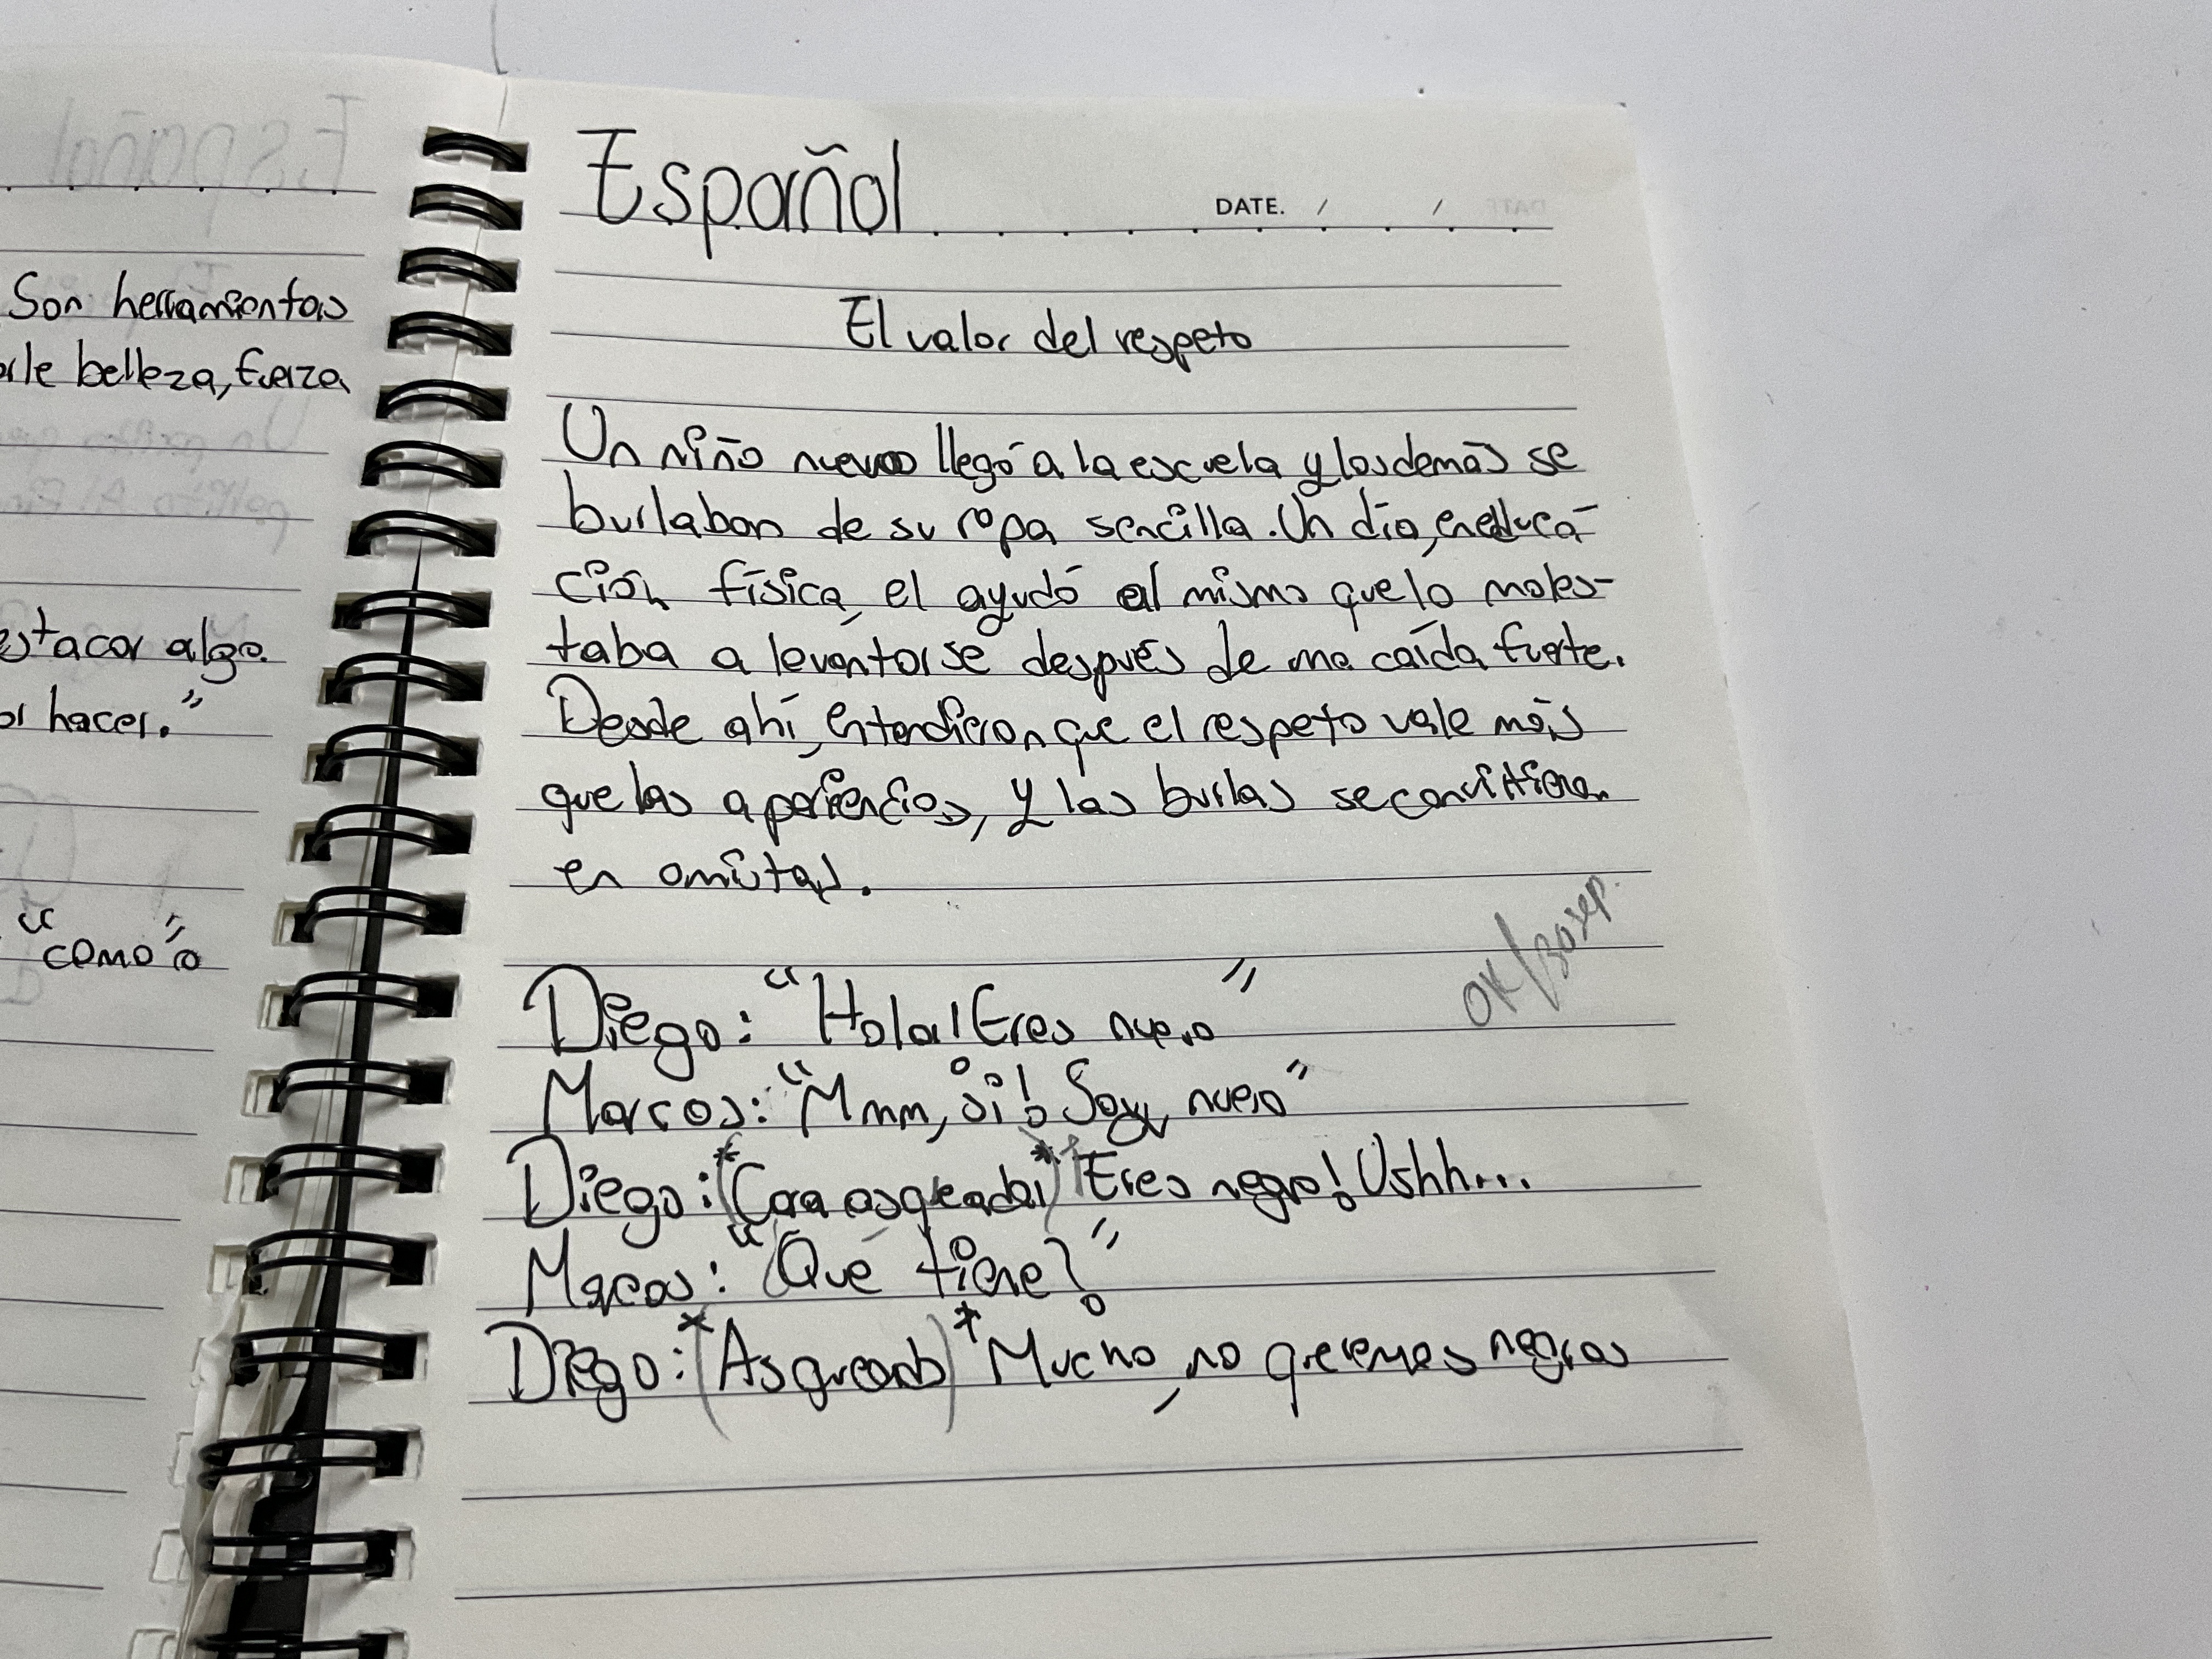 Son herramientas
arle belleza, fuerza
estacar algo.
or hacer."
"como" o
Español
DATE. / /
El valor del respeto
Un niño nuevo llegó a la escuela y los demás se
burlaban de su ropa sencilla. Un día, en educa-
ción física, el ayudó al mismo que lo moles-
taba a levantarse después de una caída fuerte.
Desde ahí, entendieron que el respeto vale más
que las apariencias, y las burlas se convirtieron
en amistad.
OK/30sep.
Diego: "Hola! Eres nuevo"
Marcos: "Mmm, si! Soy nuevo"
Diego: *(Cara asqueada)* Eres negro! Ushh...
Marcos: "Qué tiene?"
Diego: *(Asqueado)* Mucho, no queremos negros